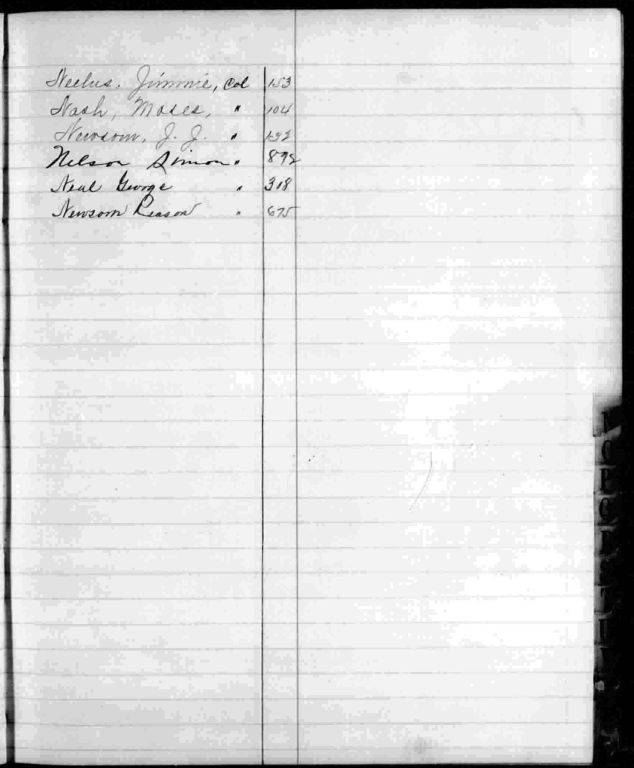 Neelus, Jimmie, Col 153
Nash, Moses, " 104
Newsom, J. J. " 192
Nelson Simon " 892
Neal George " 318
Newsom Reason " 675